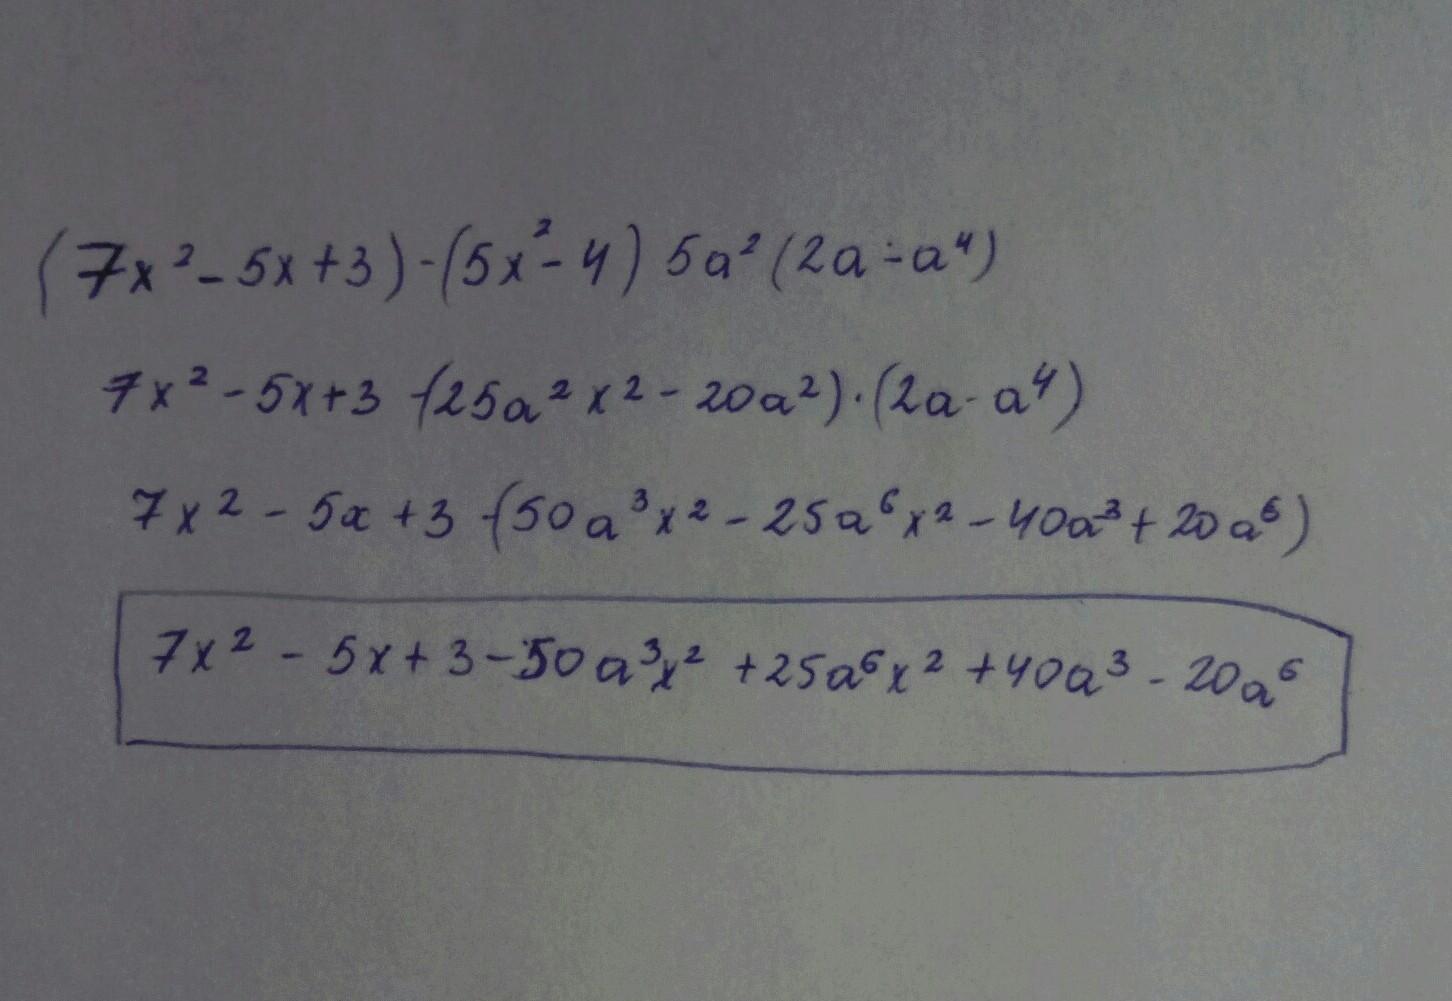 (7x² - 5x + 3) - (5x² - 4) 5a² (2a - a⁴)
7x² - 5x + 3 - (25a²x² - 20a²) · (2a - a⁴)
7x² - 5x + 3 - (50a³x² - 25a⁶x² - 40a³ + 20a⁶)
7x² - 5x + 3 - 50a³x² + 25a⁶x² + 40a³ - 20a⁶